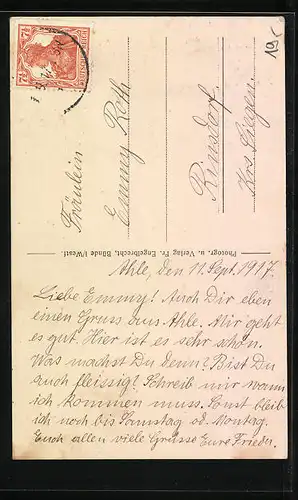 19.
7½
7½
DEUTSCHES REICH
Fräulein
Emmy Roth
Rinsdorf.
Krs. Siegen.
Photogr. u. Verlag Fr. Engelbrecht, Bünde i/Westf.
Ahle, den 11. Sept. 1917.
Liebe Emmy! Auch Dir eben
einen Gruss aus Ahle. Mir geht
es gut. Hier ist es sehr schön.
Was machst Du denn? Bist Du
auch fleissig? Schreib mir wann
ich kommen muss. Sonst bleib
ich noch bis Samstag od. Montag.
Euch allen viele Grüsse Eure Frieda.